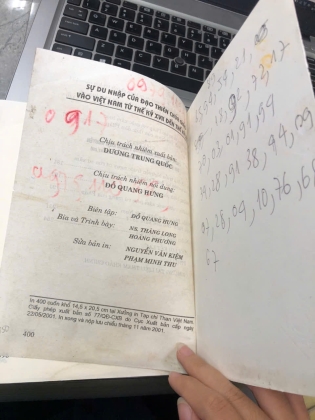 SỰ DU NHẬP CỦA ĐẠO THIÊN
VÀO VIỆT NAM TỪ THẾ KỶ XVII ĐẾN THẾ KỶ
0917
Chịu trách nhiệm xuất bản:
DƯƠNG TRUNG QUỐC
Chịu trách nhiệm nội dung:
ĐỖ QUANG HƯNG
Biên tập: ĐỖ QUANG HƯNG
Bìa và Trình bày: NS. THĂNG LONG
HOÀNG PHƯƠNG
Sửa bản in: NGUYỄN VĂN KIỆM
PHẠM MINH THU
In 400 quốn khổ 14,5 x 20,5 cm tại Xưởng in Tạp chí Than Việt Nam.
Giấy phép xuất bản số 77/QĐ-CXB do Cục Xuất bản cấp ngày
22/05/2001. In xong và nộp lưu chiểu tháng 11 năm 2001.
400
03, 01, 91, 94
28, 91, 38, 94, 09
28, 04, 10, 76, 68
67